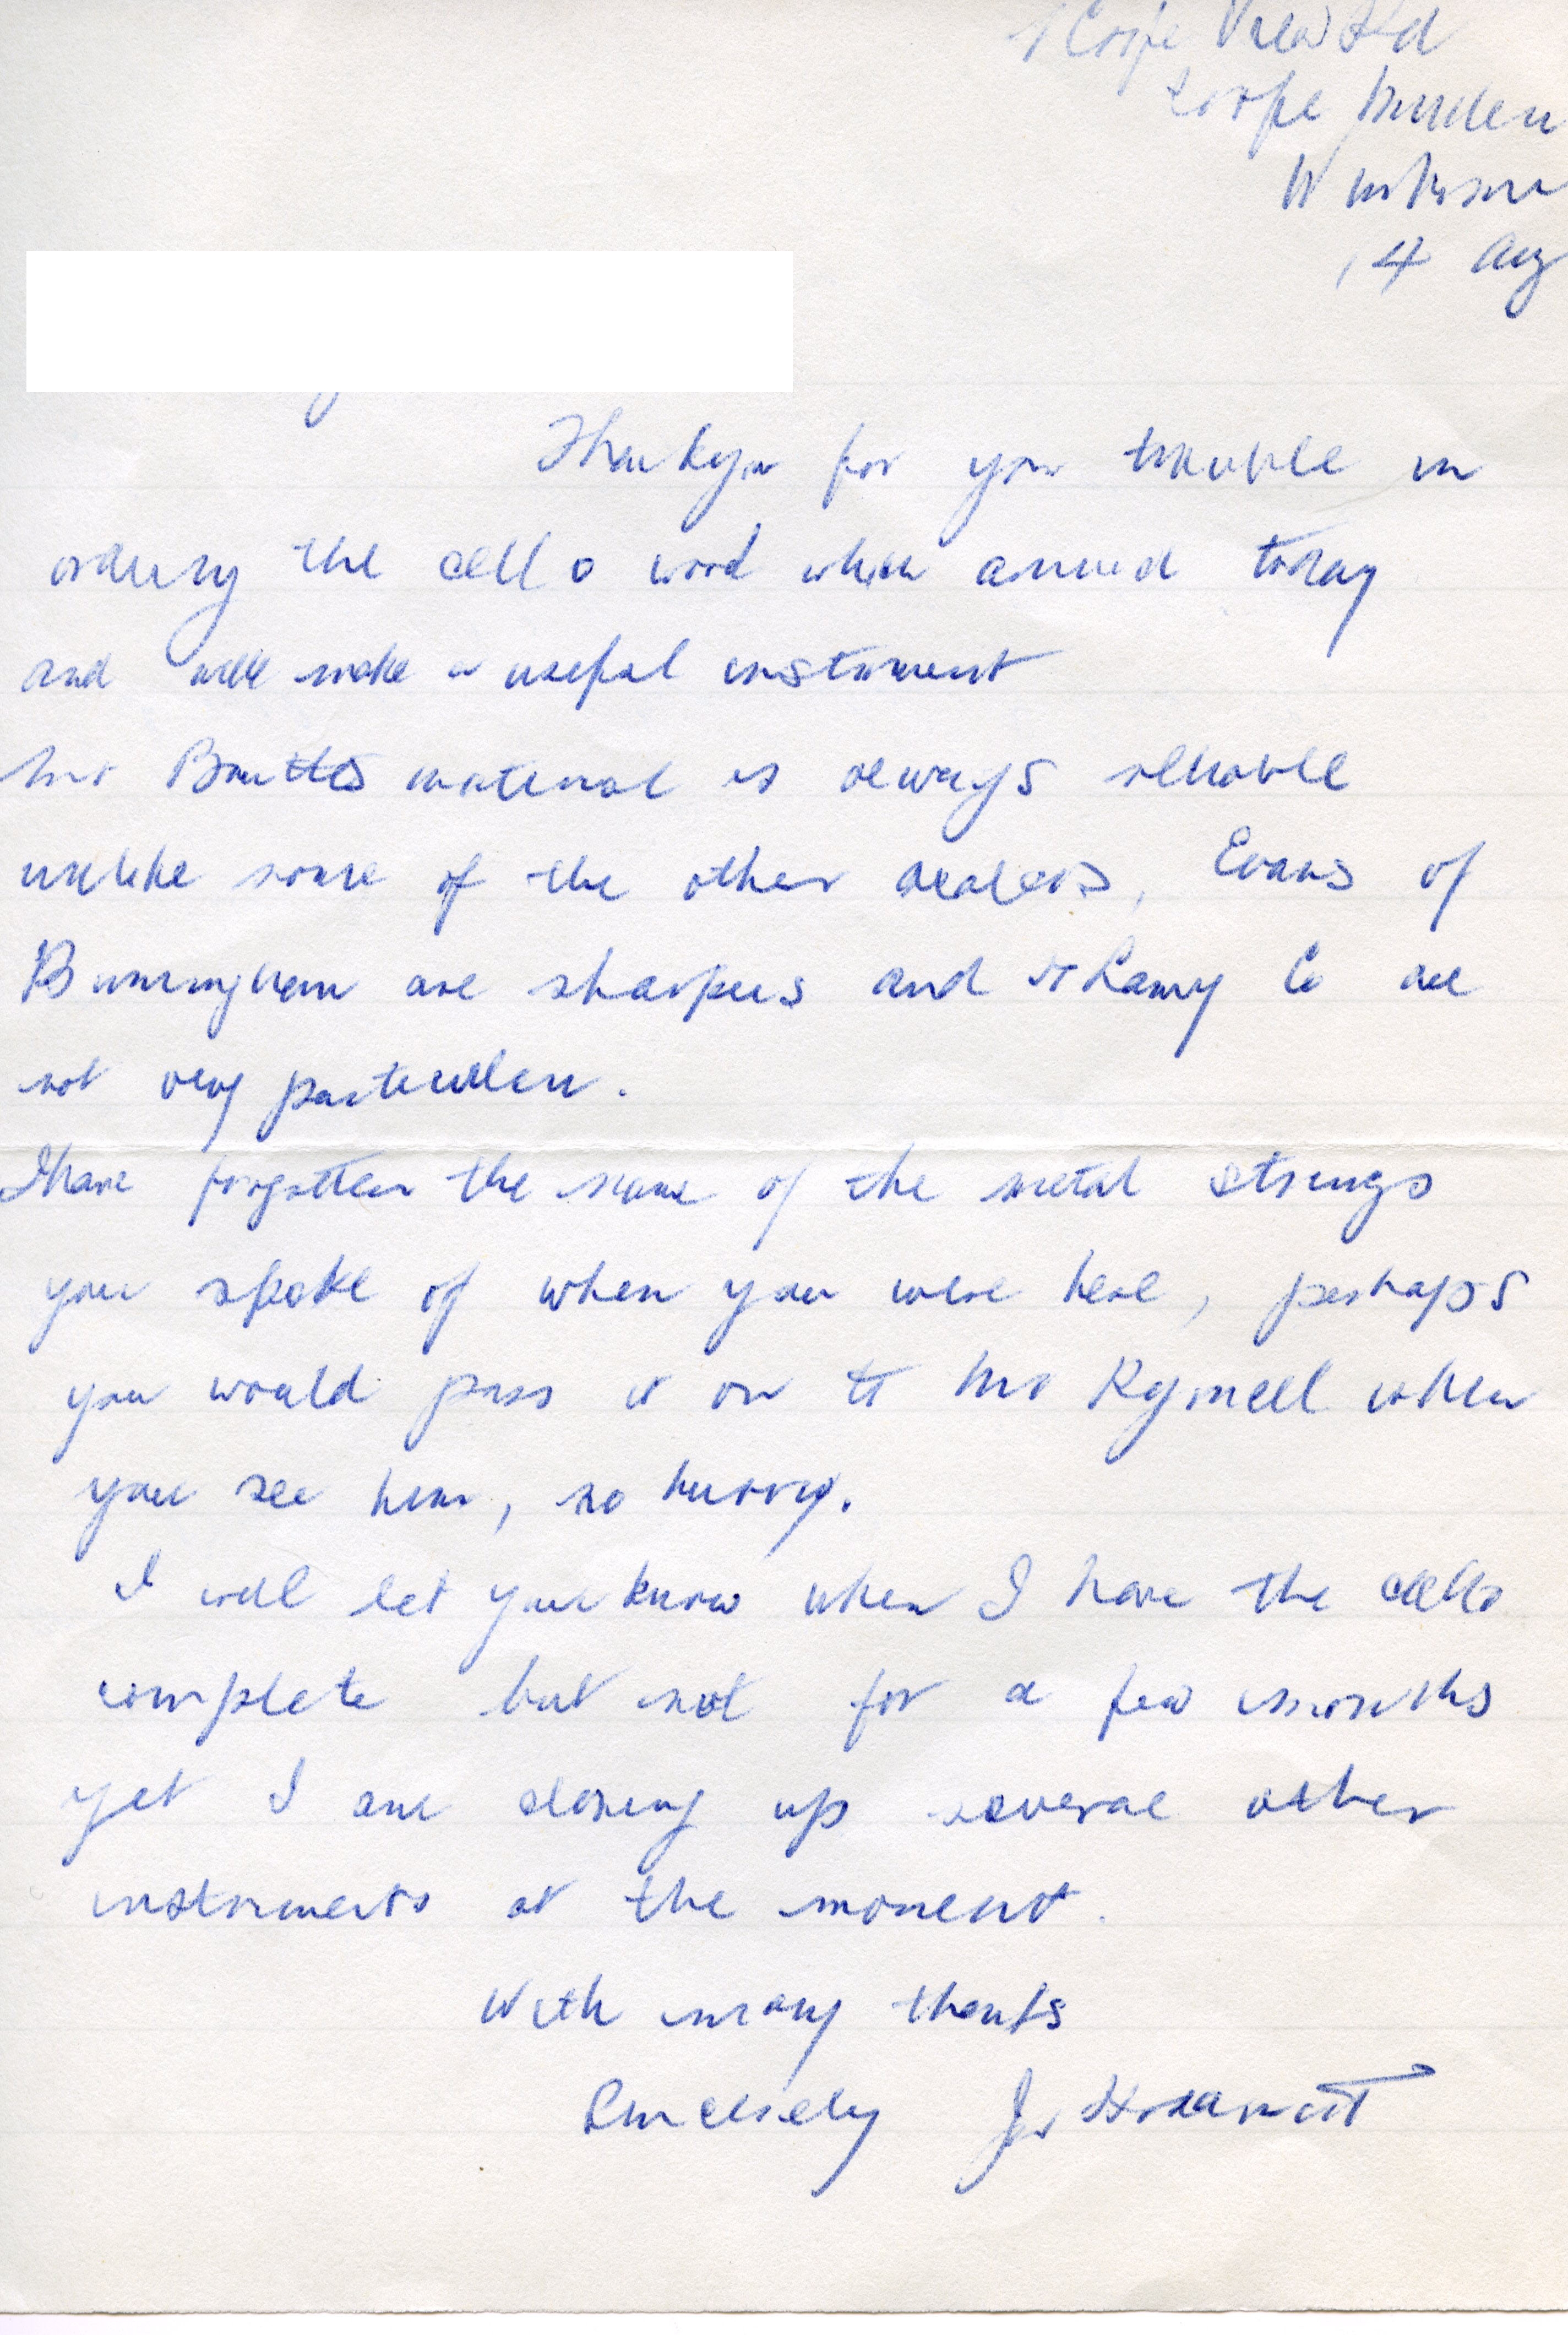 14 Aug
Thankyou for your trouble in
ordering the cello wood which arrived today
and will make a useful instrument
Mr material is always reliable
unlike some of the other dealers, Evans of
Birmingham are sharpers and Co are
not very particular.
I have forgotten the name of the metal strings
you spoke of when you were here, perhaps
you would pass it on to Mr Rymell when
you see him, no hurry.
I will let you know when I have the cello
complete but not for a few months
yet I am closing up several other
instruments at the moment.
With many thanks
Sincerely